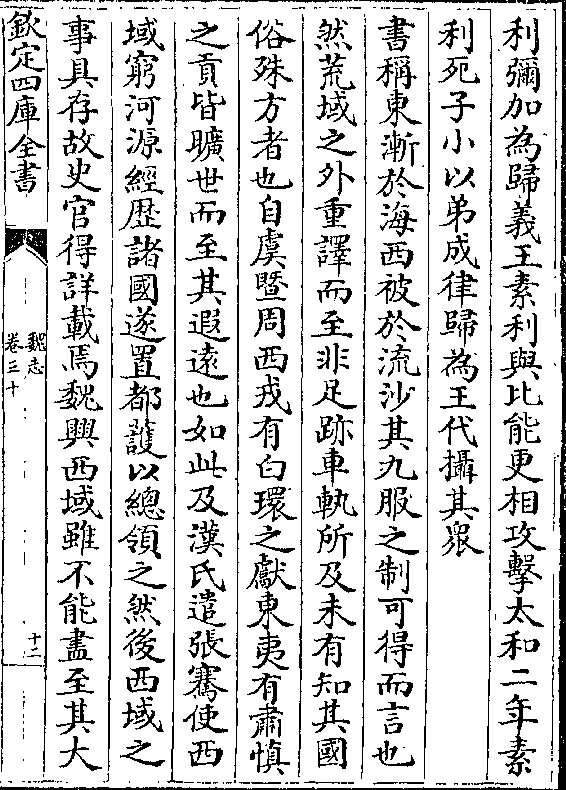 利彌加為歸義王素利與比能更相攻擊太和二年素
利死子小以弟成律歸為王代攝其衆
書稱東漸於海西被於流沙其九服之制可得而言也
然荒域之外重譯而至非足跡車軌所及未有知其國
俗殊方者也自虞暨周西戎有白環之獻東夷有肅慎
之貢皆曠世而至其遐遠也如此及漢氏遣張騫使西
域窮河源經歴諸國遂置都護以總領之然後西域之
事具存故史官得詳載焉魏興西域雖不能盡至其大
欽定四庫全書
魏志
卷三十
十二